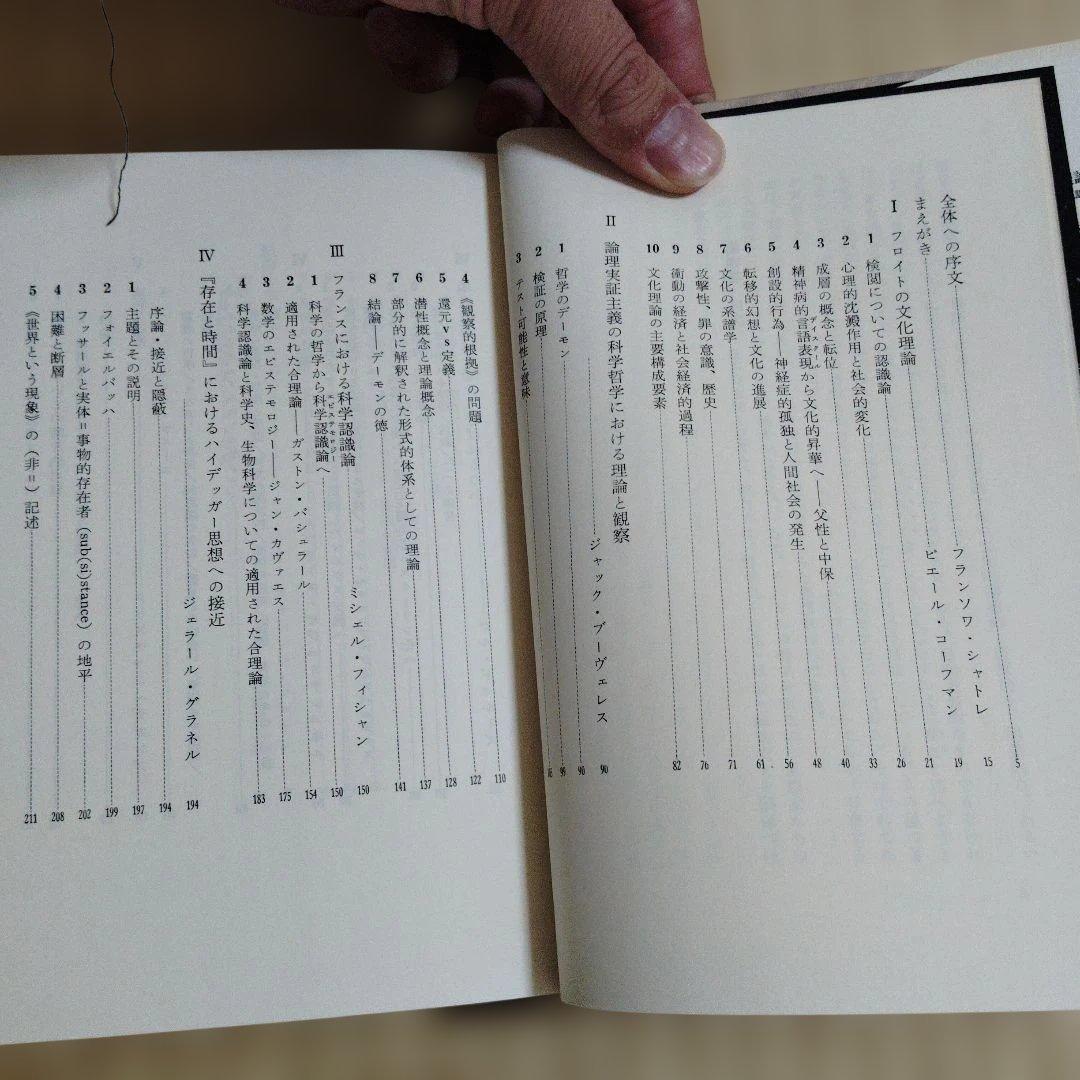 全体への序文 5
まえがき フランソワ・シャトレ 15
Ⅰ フロイトの文化理論 ピエール・コーフマン 19
1 検閲についての認識論 21
2 心理的沈澱作用と社会的変化 26
3 成層の概念と転位 33
4 精神病的言語表現から文化的昇華へ——父性と中保 40
5 創設的行為——神経症的孤独と人間社会の発生 48
6 転移的幻想と文化の進展 56
7 文化の系譜学 61
8 攻撃性、罪の意識、歴史 71
9 衝動の経済と社会経済的過程 76
10 文化理論の主要構成要素 82
Ⅱ 論理実証主義の科学哲学における理論と観察 ジャック・ブーヴェレス 90
1 哲学のデーモン 90
2 検証の原理 99
3 テスト可能性と意味
4 《観察的根拠》の問題 110
5 還元vs定義 122
6 潜性概念と理論概念 128
7 部分的に解釈された形式的体系としての理論 137
8 結論——デーモンの徳 141
Ⅲ フランスにおける科学認識論 ミシェル・フィシャン 150
1 科学の哲学から科学認識論へ 150
2 適用された合理論——ガストン・バシュラール 154
3 数学のエピステモロジー——ジャン・カヴァエス 175
4 科学認識論と科学史、生物科学についての適用された合理論 183
Ⅳ 『存在と時間』におけるハイデッガー思想への接近 ジェラール・グラネル 194
序論・接近と隠蔽 194
1 主題とその説明 197
2 フォイエルバッハ 199
3 フッサールと実体＝事物的存在者(sub(si)stance)の地平 202
4 困難と断層 208
5 《世界という現象》の(非＝)記述 211